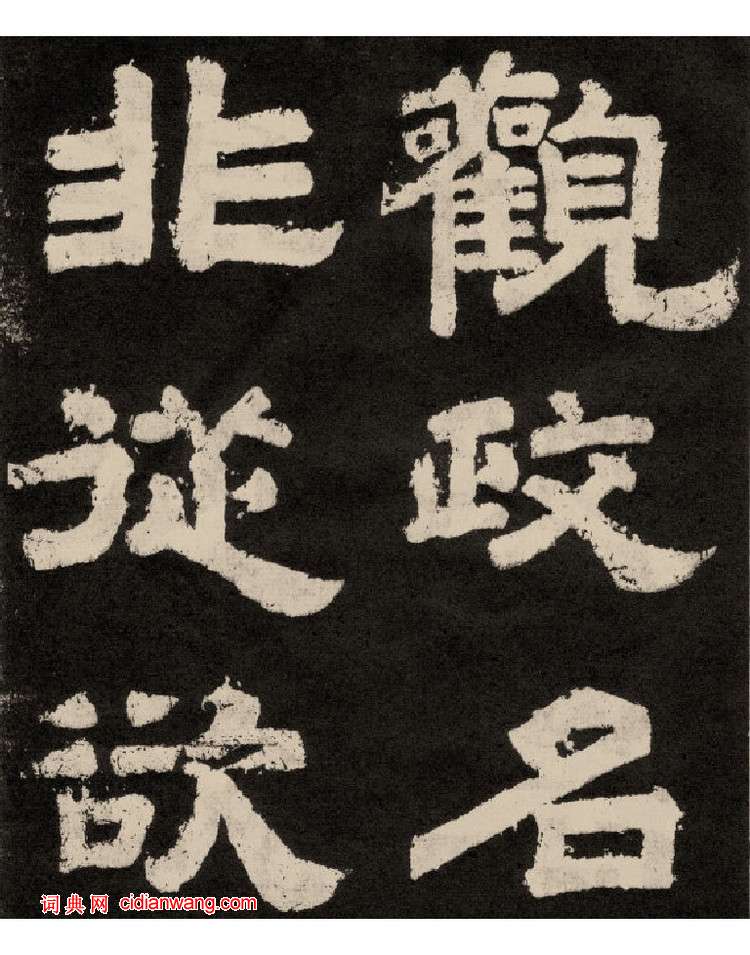 觀政名
非從欲
词典网 cidianwang.com